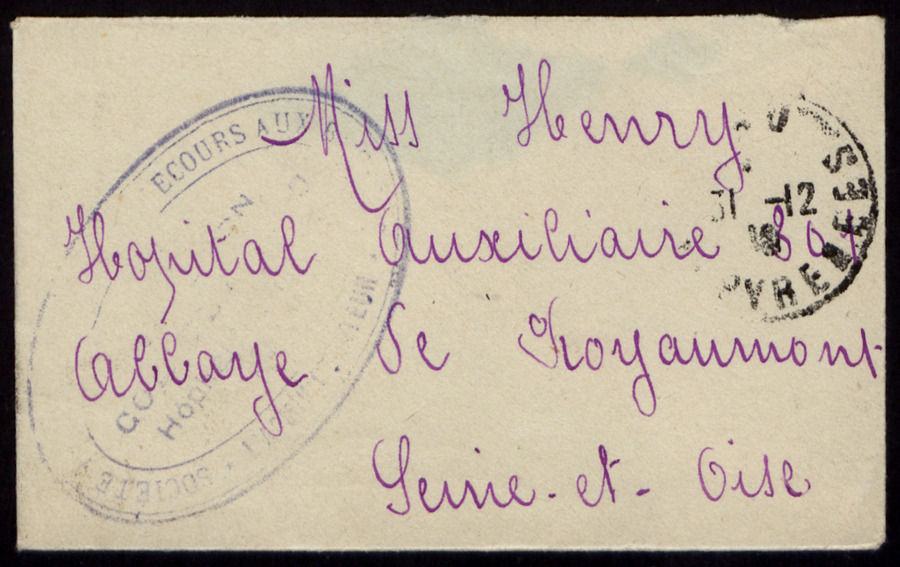 Miss Henry
Hopital Auxiliaire 301
Abbaye de Royaumont
Seine-et-Oise
ECOURS AUX
SOCIÉTÉ
31 -12
PYRENEES